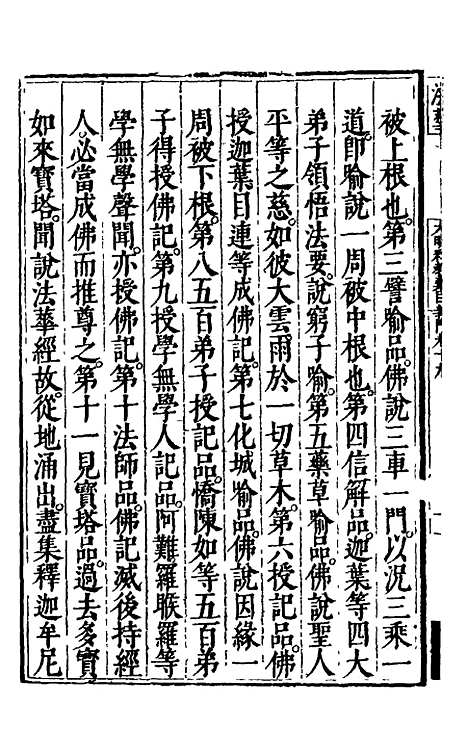 被上根也。第三譬喻品。佛說三車一門。以況三乘一
道。即喻說一周被中根也。第四信解品。迦葉等四大
弟子領悟法要。說窮子喻。第五藥草喻品。佛說聖人
平等之慈。如彼大雲雨於一切草木。第六授記品。佛
授迦葉目連等成佛記。第七化城喻品。佛說因緣一
周被下根。第八五百弟子授記品。憍陳如等五百弟
子得授佛記。第九授學無學人記品。阿難羅睺羅等
學無學聲聞。亦授佛記。第十法師品。佛記滅後持經
人。必當成佛而推尊之。第十一見寶塔品。過去多寶
如來寶塔。聞說法華經故。從地涌出。盡集釋迦牟尼